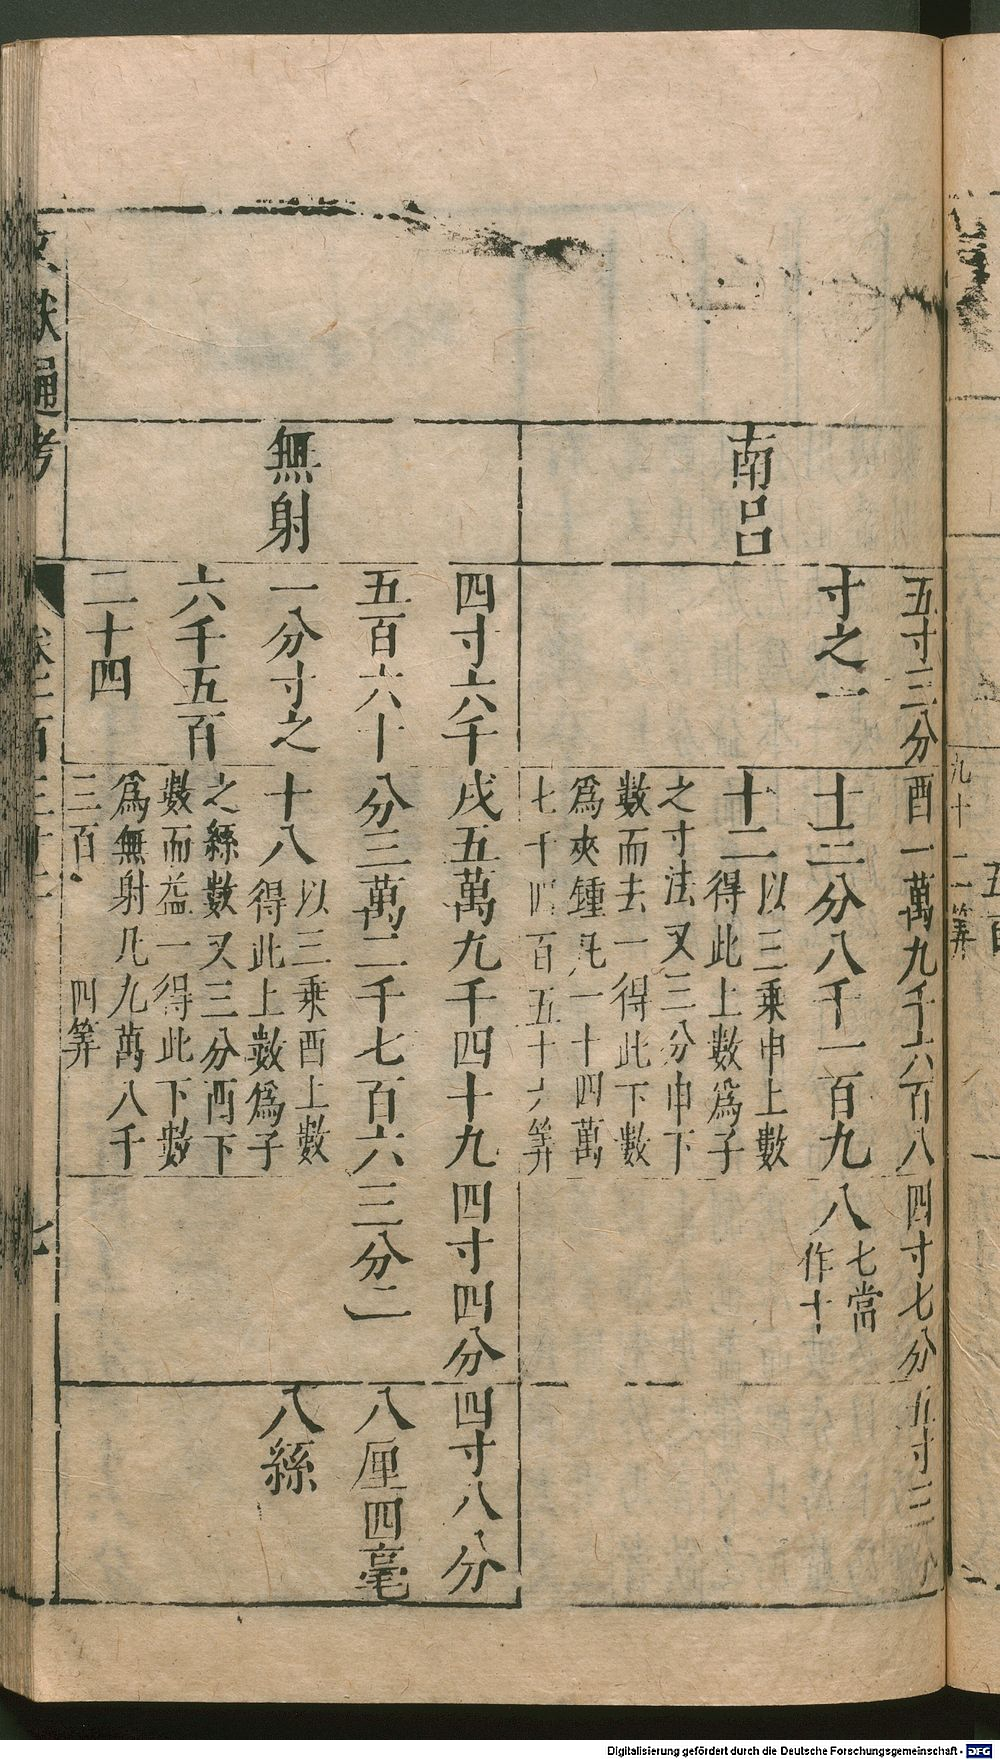 南呂
五寸三分
寸之一
酉一萬九千六百八
十三分八千一百九
十二
以三乘申上數
得此上數爲子
之寸法又三分申下
數而去一得此下數
爲夾鍾凡一十四萬
七千四百五十六筭
四寸七分
八
七當
作十
五寸三分
無射
四寸六千
五百六十
一分寸之
六千五百
二十四
戌五萬九千四十九
分三萬二千七百六
十八
以三乘酉上數
得此上數爲子
之絲數又三分酉下
數而益一得此下數
爲無射凡九萬八千
三百 四筭
四寸四分
三分二
四寸八分
八厘四毫
八絲
文獻通考
卷一百三十一
七
九十二筭
五百
Digitalisierung gefördert durch die Deutsche Forschungsgemeinschaft - DFG